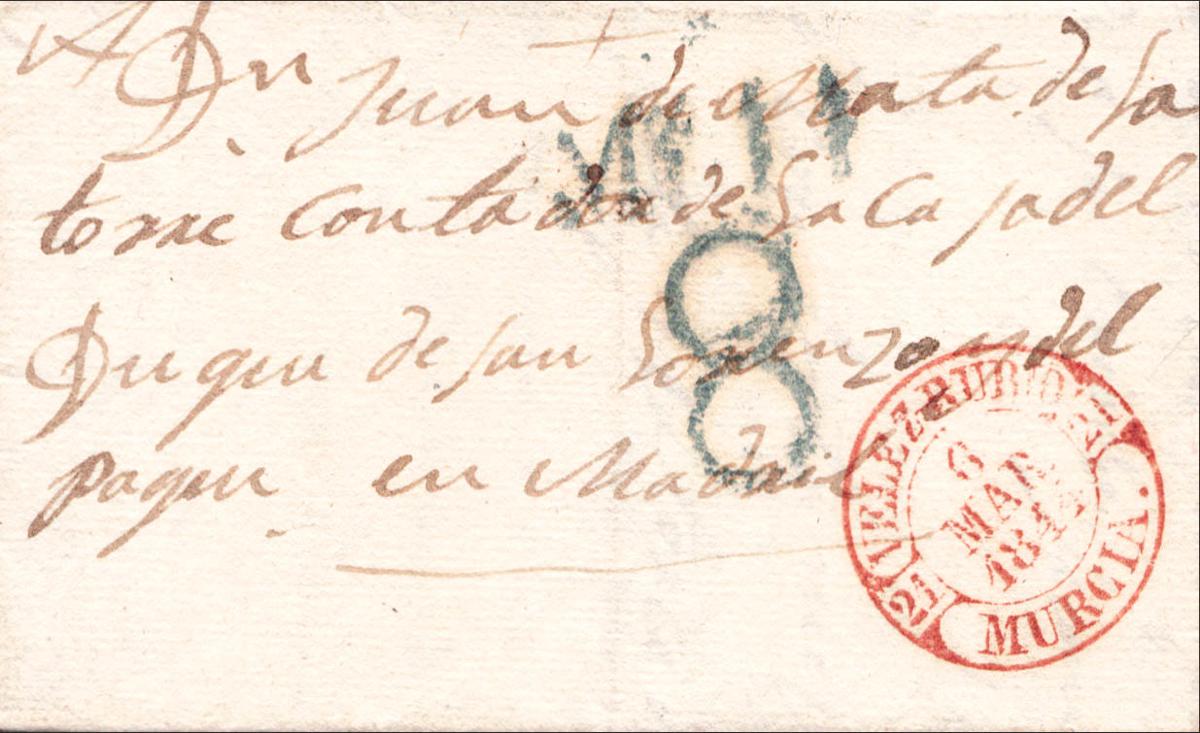 A Dn Juan de Mata de la
torre contador de la Casa del
Duque de san Lorenzo y del
paque en Madrid
8
VELEZ-RUBIO
21
6
MAR
184
MURCIA.